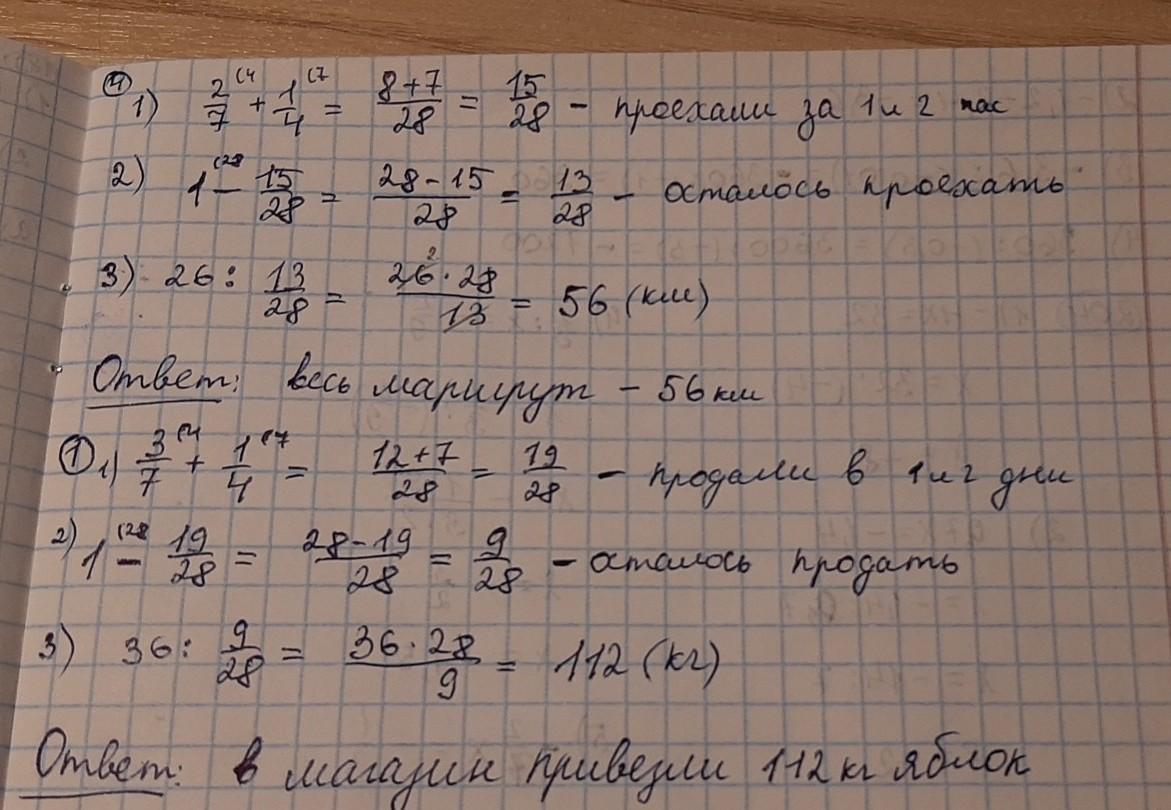 ④ 1) 2/7 (4 + 1/4 (7 = 8+7/28 = 15/28 – проехали за 1 и 2 час
2) 1 (28 – 15/28 = 28-15/28 = 13/28 – осталось проехать
3) 26 : 13/28 = 26 2 · 28/13 = 56 (км)
Ответ: весь маршрут – 56 км
① 1) 3/7 (4 + 1/4 (7 = 12+7/28 = 19/28 – продали в 1 и 2 дни
2) 1 (28 – 19/28 = 28-19/28 = 9/28 – осталось продать
3) 36 : 9/28 = 36·28/9 = 112 (кг)
Ответ: в магазин привезли 112 кг яблок